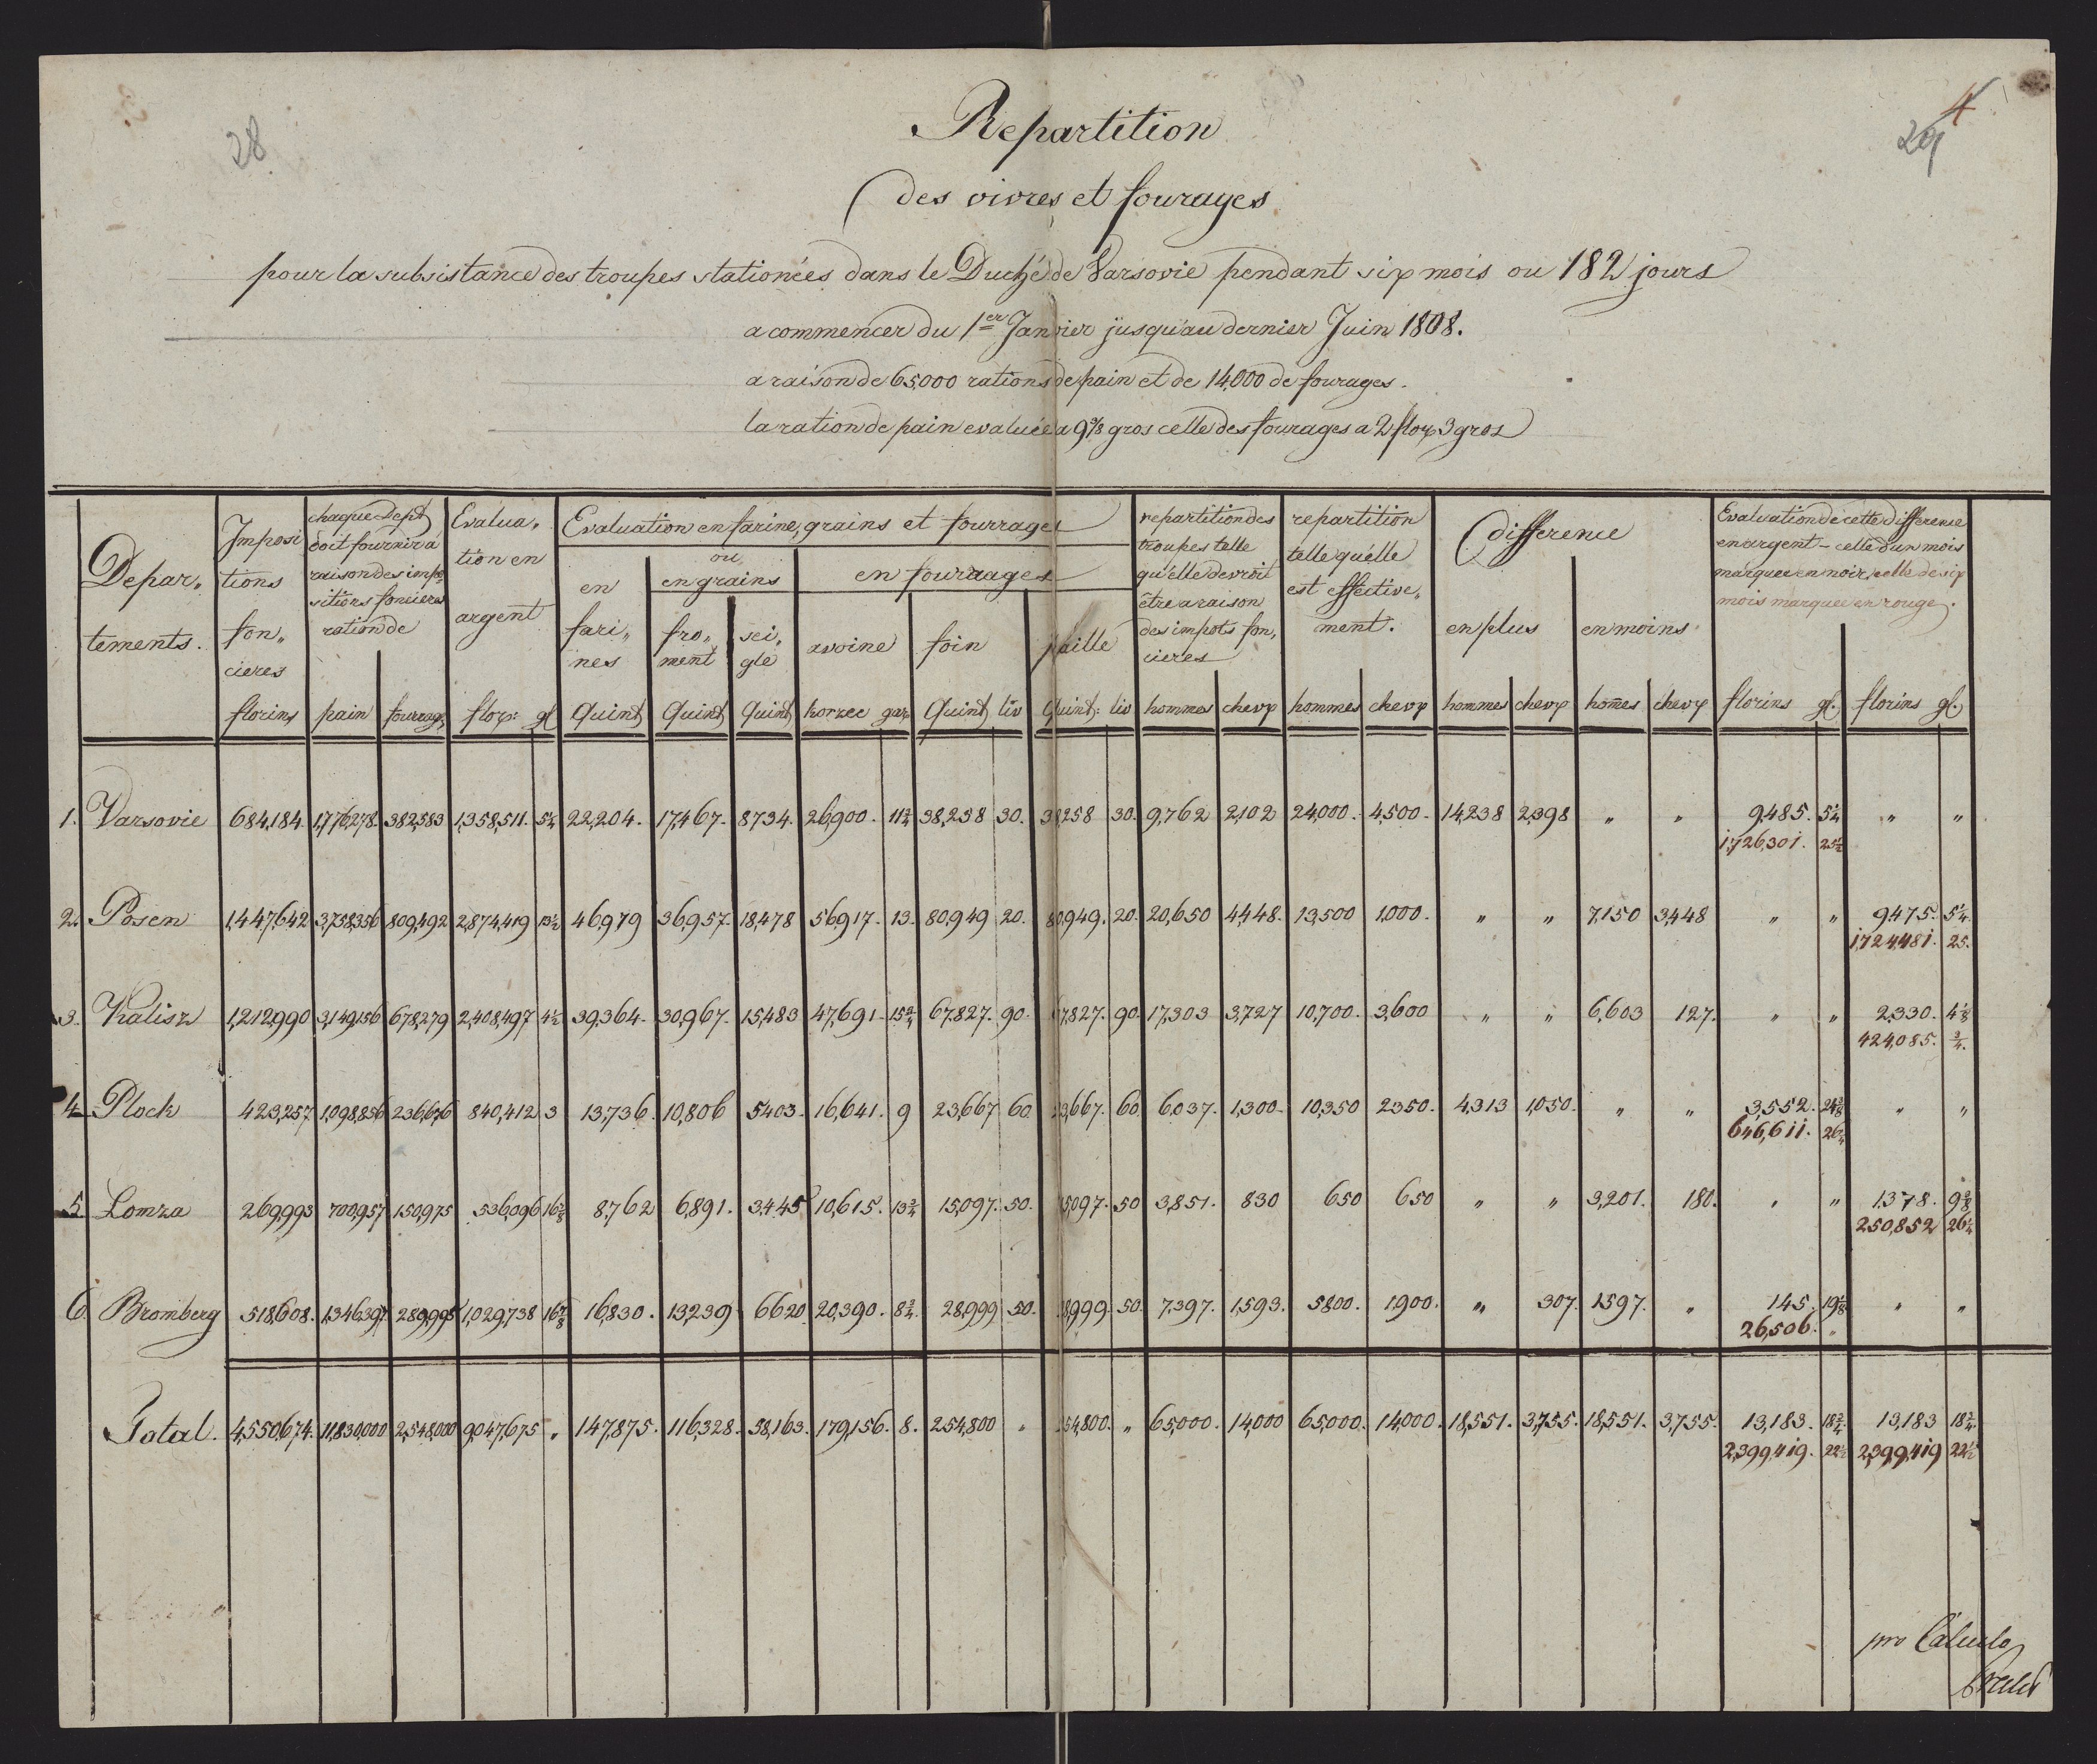 28
4
29
Repartition
des vivres et fourages
pour la subsistance des troupes stationées dans le Duché de Varsovie pendant six mois ou 182 jours
a commencer du 1er Janvier jusqu'au dernier Juin 1808.
a raison de 65,000 rations de pain et de 14,000 de fourages.
la ration de pain evaluée a 9 3/8 gros celle des fourages a 2 flox 3 gros
Depar„ tements. | Imposi tions fon„ cieres | chaque Dept doit fournir à raison des impo„ sitions foncieres ration de | Evalua„ tion en argent | Evaluation en farine, grains et fourrages | repartition des troupes telle qu'elle devroit être a raison des impots fon„ cieres | repartition telle qu'elle est effective„ ment. | difference | Evaluation de cette difference en argent – celle d'un mois marquée en noir, celle de six mois marquée en rouge.
en fari„ nes | ou en grains | en fourrages | en plus | en moins
fro„ ment | sei„ gle | avoine | foin | paille
florins | pain | fourrag. | flox: gl | Quint | Quint | Quint | korzec gar | Quint liv | Quint: liv | hommes | chevx | hommes | chevx | hommes | chevx | hom̃es | chevx | florins gl. | florins gl.
1. Varsovie | 684,184. | 1,776,278. | 382,583 | 1,358,511. 5¼ | 22,204. | 17,467. | 8734. | 26,900. 11¾ | 38,238 30. | 38,258 30. | 9,762 | 2,102 | 24,000. | 4,500. | 14,238 | 2,398 | „ | „ | 9,485. 5¼ | „ „
1,726,301. 25½
2. Posen | 1,447,642 | 3,758,356 | 809,492 | 2,874,419 13½ | 46,979 | 36,957. | 18,478 | 56,917. 13. | 80,949 20. | 80,949. 20. | 20,650 | 4,448. | 13,500 | 1,000. | „ | „ | 7,150 | 3,448 | „ „ | 9,475. 5¼.
1,724,481. 25.
3. Kalisz | 1,212,990 | 3,149,156 | 678,279 | 2,408,497 4½ | 39,364. | 30,967. | 15,483 | 47,691. 15¾ | 67,827. 90. | 67,827. 90. | 17,303 | 3,727 | 10,700. | 3,600 | „ | „ | 6,603 | 127. | „ „ | 2,330. 4⅛
424,085. ¾.
4. Plock | 423,257 | 1,098,856 | 236,676 | 840,412 3 | 13,736. | 10,806 | 5403. | 16,641. 9 | 23,667 60. | 23,667. 60. | 6,037. | 1,300. | 10,350 | 2350. | 4,313 | 1,050. | „ | „ | 3,552. 24⅜ | „ „
646,611. 26¼
5. Lomza | 269,993 | 700,957 | 150,975 | 536,096 16⅞ | 8,762 | 6,891. | 3,445 | 10,615. 13¾ | 15,097. 50. | 15,097. 50 | 3,851. | 830 | 650 | 650 | „ | „ | 3,201. | 180. | „ „ | 1,378. 9⅜
250,852 26¼
6. Bromberg | 518,608. | 1,346,397. | 289,995 | 1,029,738 16⅞ | 16,830. | 13,239 | 6620 | 20,390. 8¾. | 28,999 50. | 28,999. 50. | 7,397. | 1,593. | 5800. | 1,900. | „ | 307. | 1597. | „ | 145. 19⅛ | „ „
26,506. „
Total. | 4,550,674. | 11,830,000 | 2,548,000 | 9,047,675 „ | 147,875. | 116,328. | 58,163. | 179,156. 8. | 254,800 „ | 254,800. „ | 65,000. | 14,000 | 65,000. | 14,000. | 18,551. | 3,755. | 18,551. | 3,755. | 13,183. 18¾ | 13,183 18¾
2,399,419. 22½ | 2,399,419 22½
pro Calculo